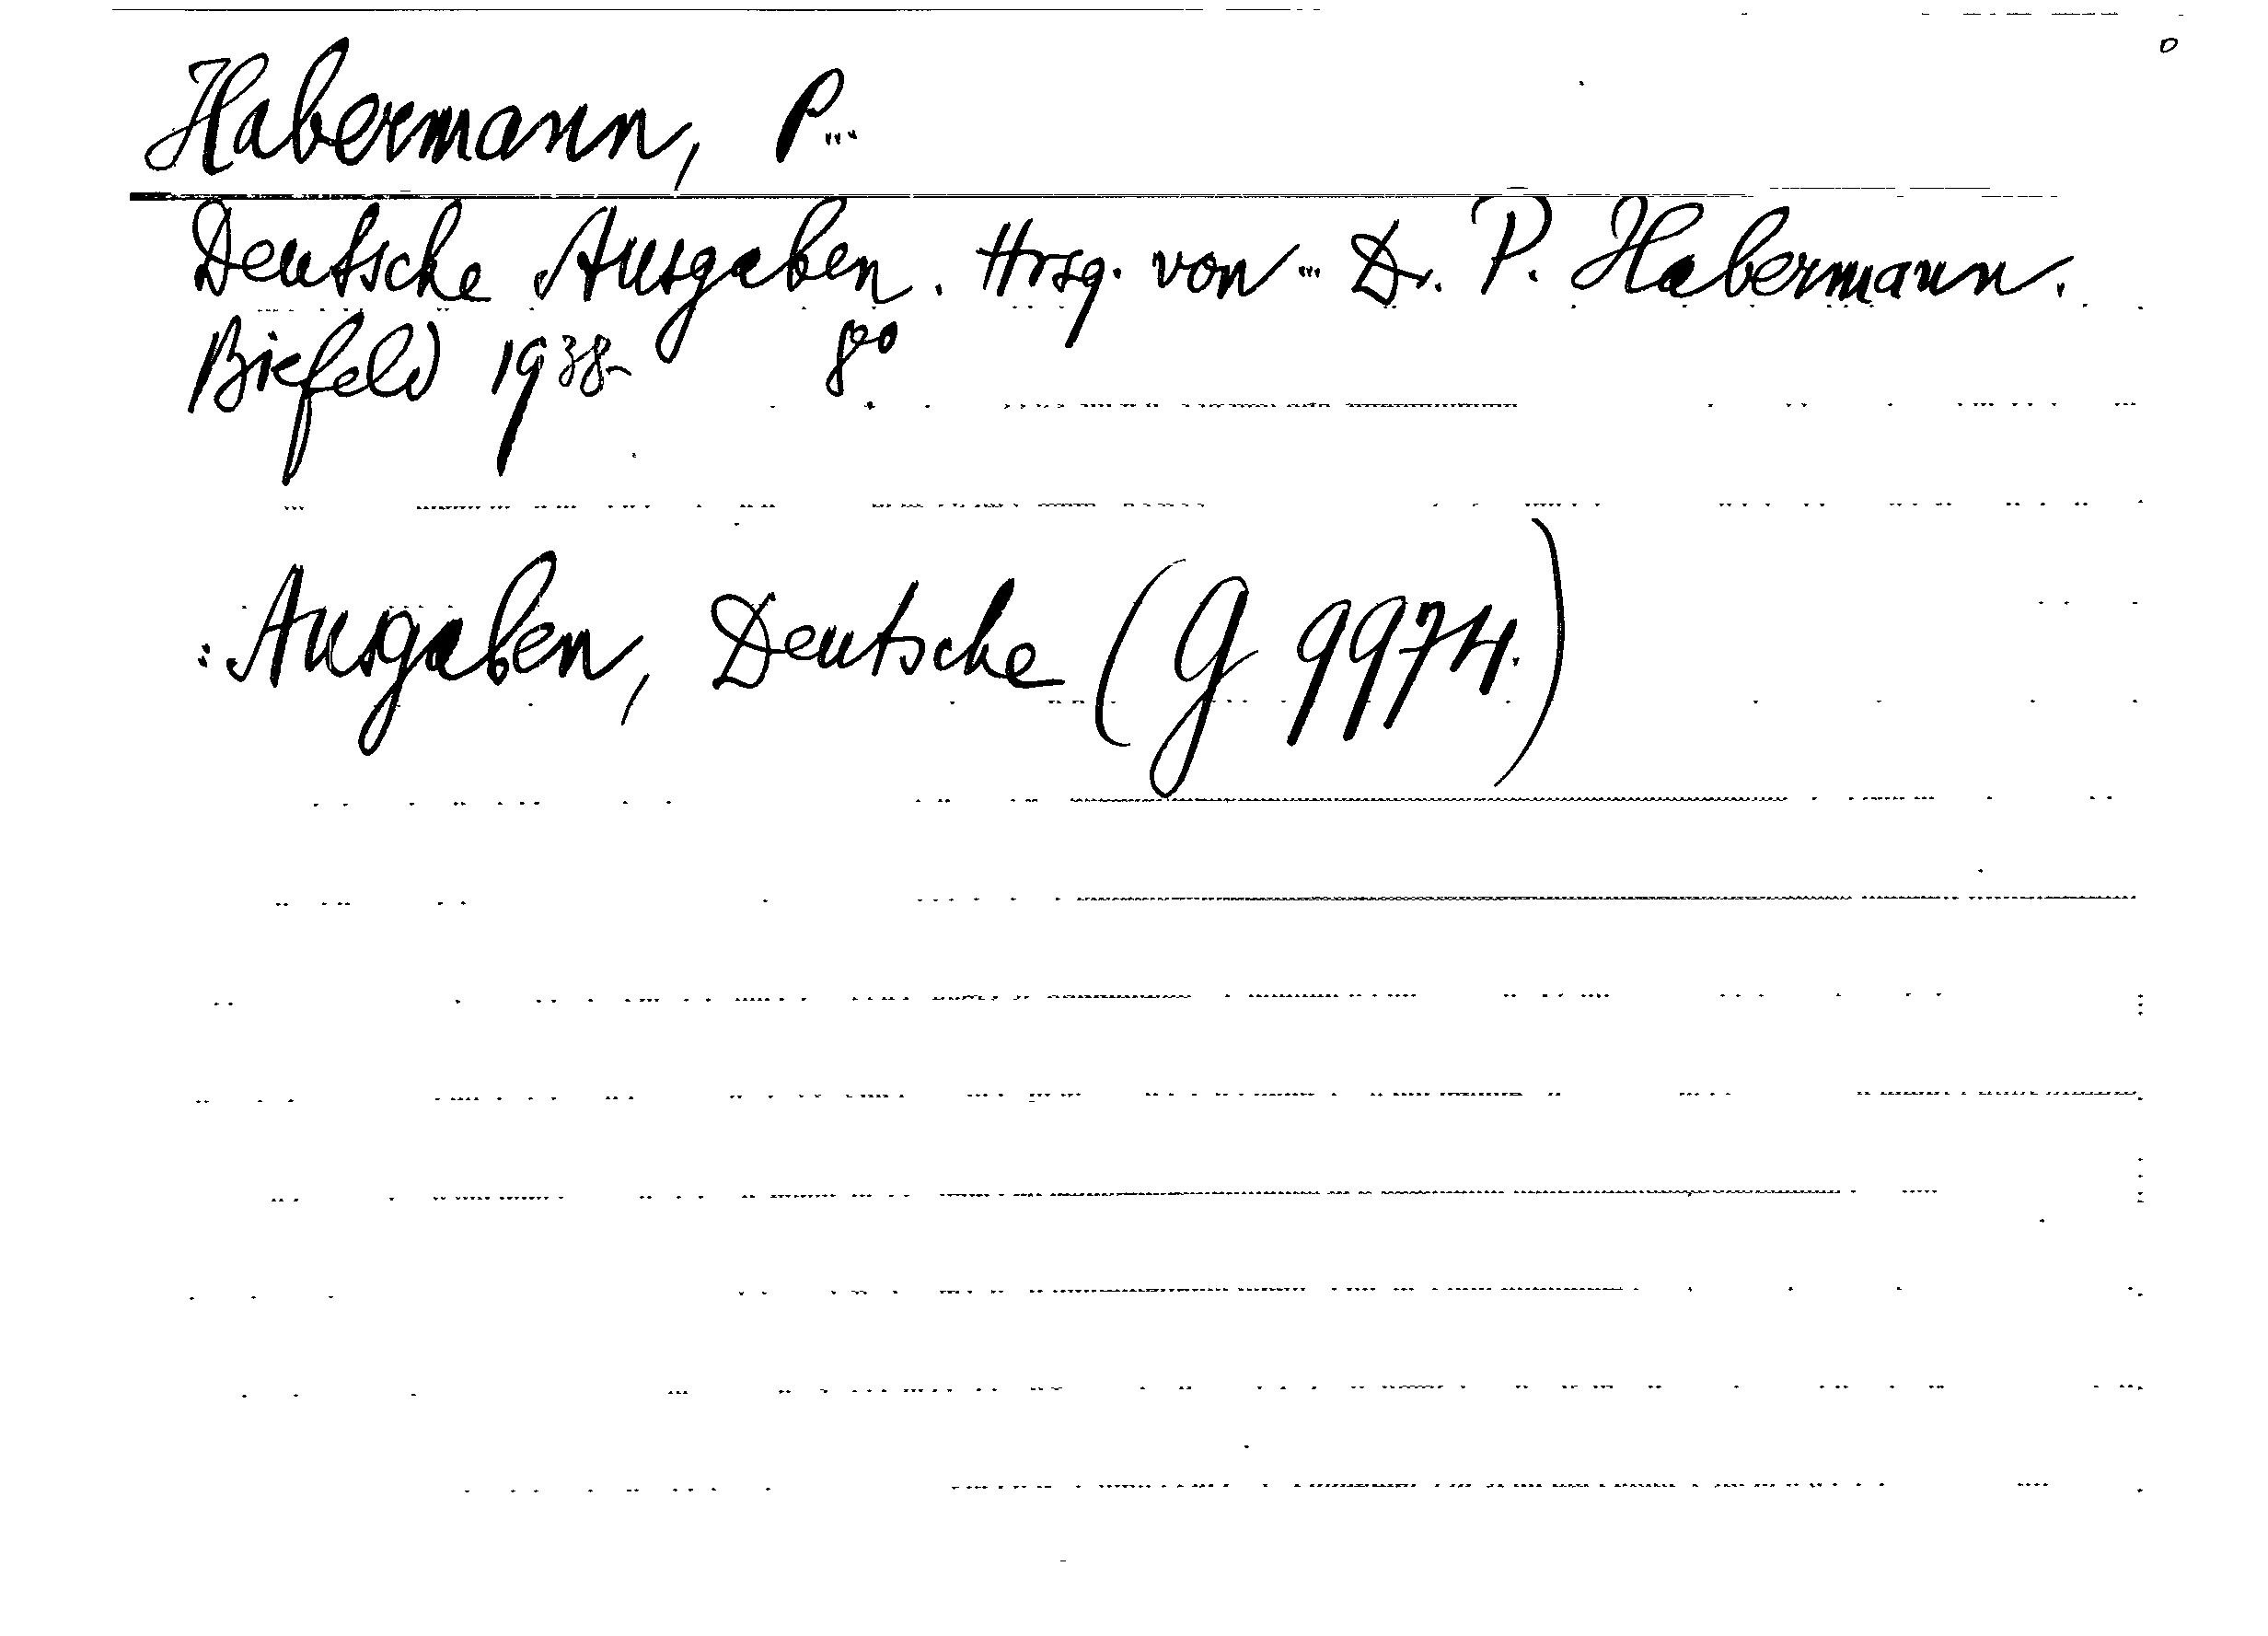 Habermann, P...
Deutsche Ausgaben. Hrsg. von ... Dr. P. Habermann.
Biefeld 1938- 8°
Ausgaben, Deutsche (G 9974.)